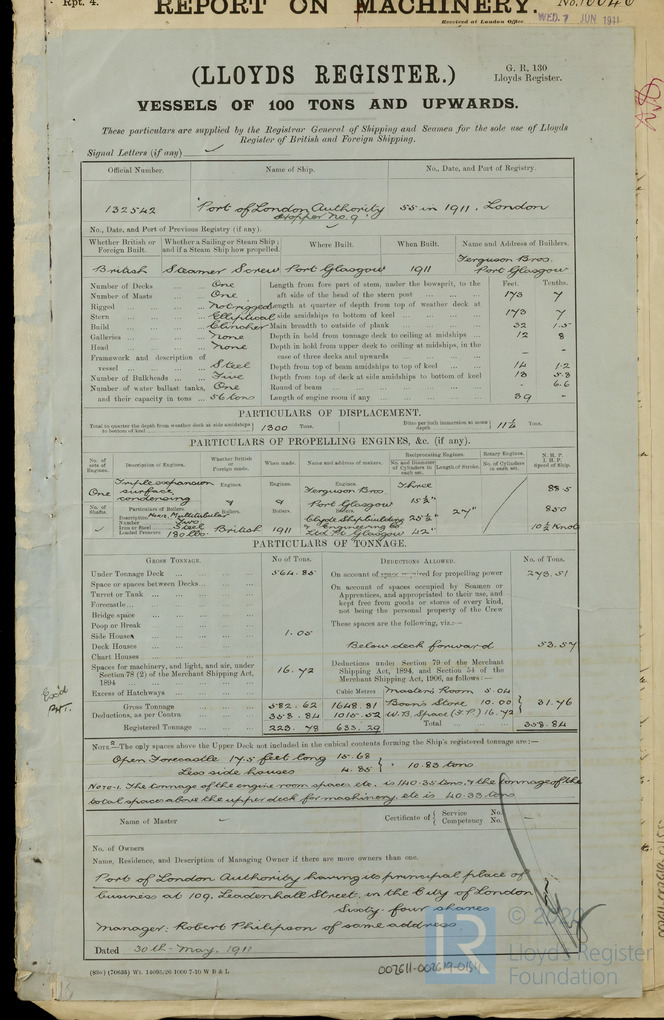 Rpt. 4.
REPORT ON MACHINERY.
Received at London Office WED. 7 JUN 1911
(LLOYDS REGISTER.)
G. R. 130
Lloyds Register.
VESSELS OF 100 TONS AND UPWARDS.
These particulars are supplied by the Registrar General of Shipping and Seamen for the sole use of Lloyds
Register of British and Foreign Shipping.
Signal Letters (if any)
Official Number. Name of Ship. No., Date, and Port of Registry.
132542 "Port of London Authority Hopper No. 9" 55 in 1911. London
No., Date, and Port of Previous Registry (if any).
Whether British or Foreign Built. Whether a Sailing or Steam Ship; and if a Steam Ship how propelled. Where Built. When Built. Name and Address of Builders.
British Steamer Screw Port Glasgow 1911 Ferguson Bros. Port Glasgow
Number of Decks One Length from fore part of stem, under the bowsprit, to the Feet. Tenths.
Number of Masts One aft side of the head of the stern post 173 7
Rigged Not rigged Length at quarter of depth from top of weather deck at
Stern Elliptical side amidships to bottom of keel 173 7
Build Clincher Main breadth to outside of plank 32 1.5
Galleries None Depth in hold from tonnage deck to ceiling at midships 12 8
Head None Depth in hold from upper deck to ceiling at midships, in the
Framework and description of case of three decks and upwards - -
vessel Steel Depth from top of beam amidships to top of keel 14 1.2
Number of Bulkheads Five Depth from top of deck at side amidships to bottom of keel 13 5.8
Number of water ballast tanks, One Round of beam - 6.6
and their capacity in tons 56 tons Length of engine room if any 39 -
PARTICULARS OF DISPLACEMENT.
Total to quarter the depth from weather deck at side amidships to bottom of keel 1300 Tons. Ditto per inch immersion at same depth 11½ Tons.
PARTICULARS OF PROPELLING ENGINES, &c. (if any).
No. of sets of Engines. Description of Engines. Whether British or Foreign made. When made. Name and address of makers. Reciprocating Engines. Rotary Engines. N. H. P. I. H. P. Speed of Ship.
No. and Diameter of Cylinders in each set. Length of Stroke. No. of Cylinders in each set.
One Triple expansion surface condensing Engines. Engines. Engines. Ferguson Bros Port Glasgow Three 88.5
No. of Shafts. Particulars of Boilers. Boilers. Boilers. Boilers. 27" 850
Description Multitubular
Number Two Clyde Shipbuilding & Engineering Co
Iron or Steel Steel British 1911 Ltd Pt Glasgow 42" 10½ Knots
Loaded Pressure 180 lbs.
PARTICULARS OF TONNAGE.
GROSS TONNAGE. No of Tons. DEDUCTIONS ALLOWED. No. of Tons.
Under Tonnage Deck 564.85 On account of space required for propelling power 273.51
Space or spaces between Decks On account of spaces occupied by Seamen or
Turret or Tank Apprentices, and appropriated to their use, and
Forecastle kept free from goods or stores of every kind,
Bridge space not being the personal property of the Crew
Poop or Break These spaces are the following, viz:—
Side Houses 1.05
Deck Houses Below deck forward 53.57
Chart House
Spaces for machinery, and light, and air, under Section 78 (2) of the Merchant Shipping Act, 1894 16.72 Deductions under Section 79 of the Merchant Shipping Act, 1894, and Section 54 of the Merchant Shipping Act, 1906, as follows:—
Excess of Hatchways Cubic Metres Master's Room 5.04
Gross Tonnage 582.62 1648.81 Bosn's Store 10.00 31.76
Deductions, as per Contra 358.84 1015.52 W.B. Space (F.P.) 16.72
Registered Tonnage 223.78 633.29 Total 358.84
NOTE 2—The only spaces above the Upper Deck not included in the cubical contents forming the Ship's registered tonnage are:—
Open Forecastle 17.5 feet long 15.68
Less side houses 4.85 10.83 tons
NOTE-1. The tonnage of the engine room spaces etc. is 140.35 tons, & the tonnage of the
total spaces above the upper deck for machinery, etc is 40.33 tons
Name of Master - Certificate of Service No. Competency No. -
No. of Owners
Name, Residence, and Description of Managing Owner if there are more owners than one.
Port of London Authority having its principal place of
business at 109, Leadenhall Street, in the City of London
Sixty four shares
Manager: Robert Philipson of same address.
Dated 30th May, 1911
(83o) (70635) Wt. 14093/26 1000 7-10 W B & L
002611-002619-0151
© 2020
LR
Lloyd's Register
Foundation